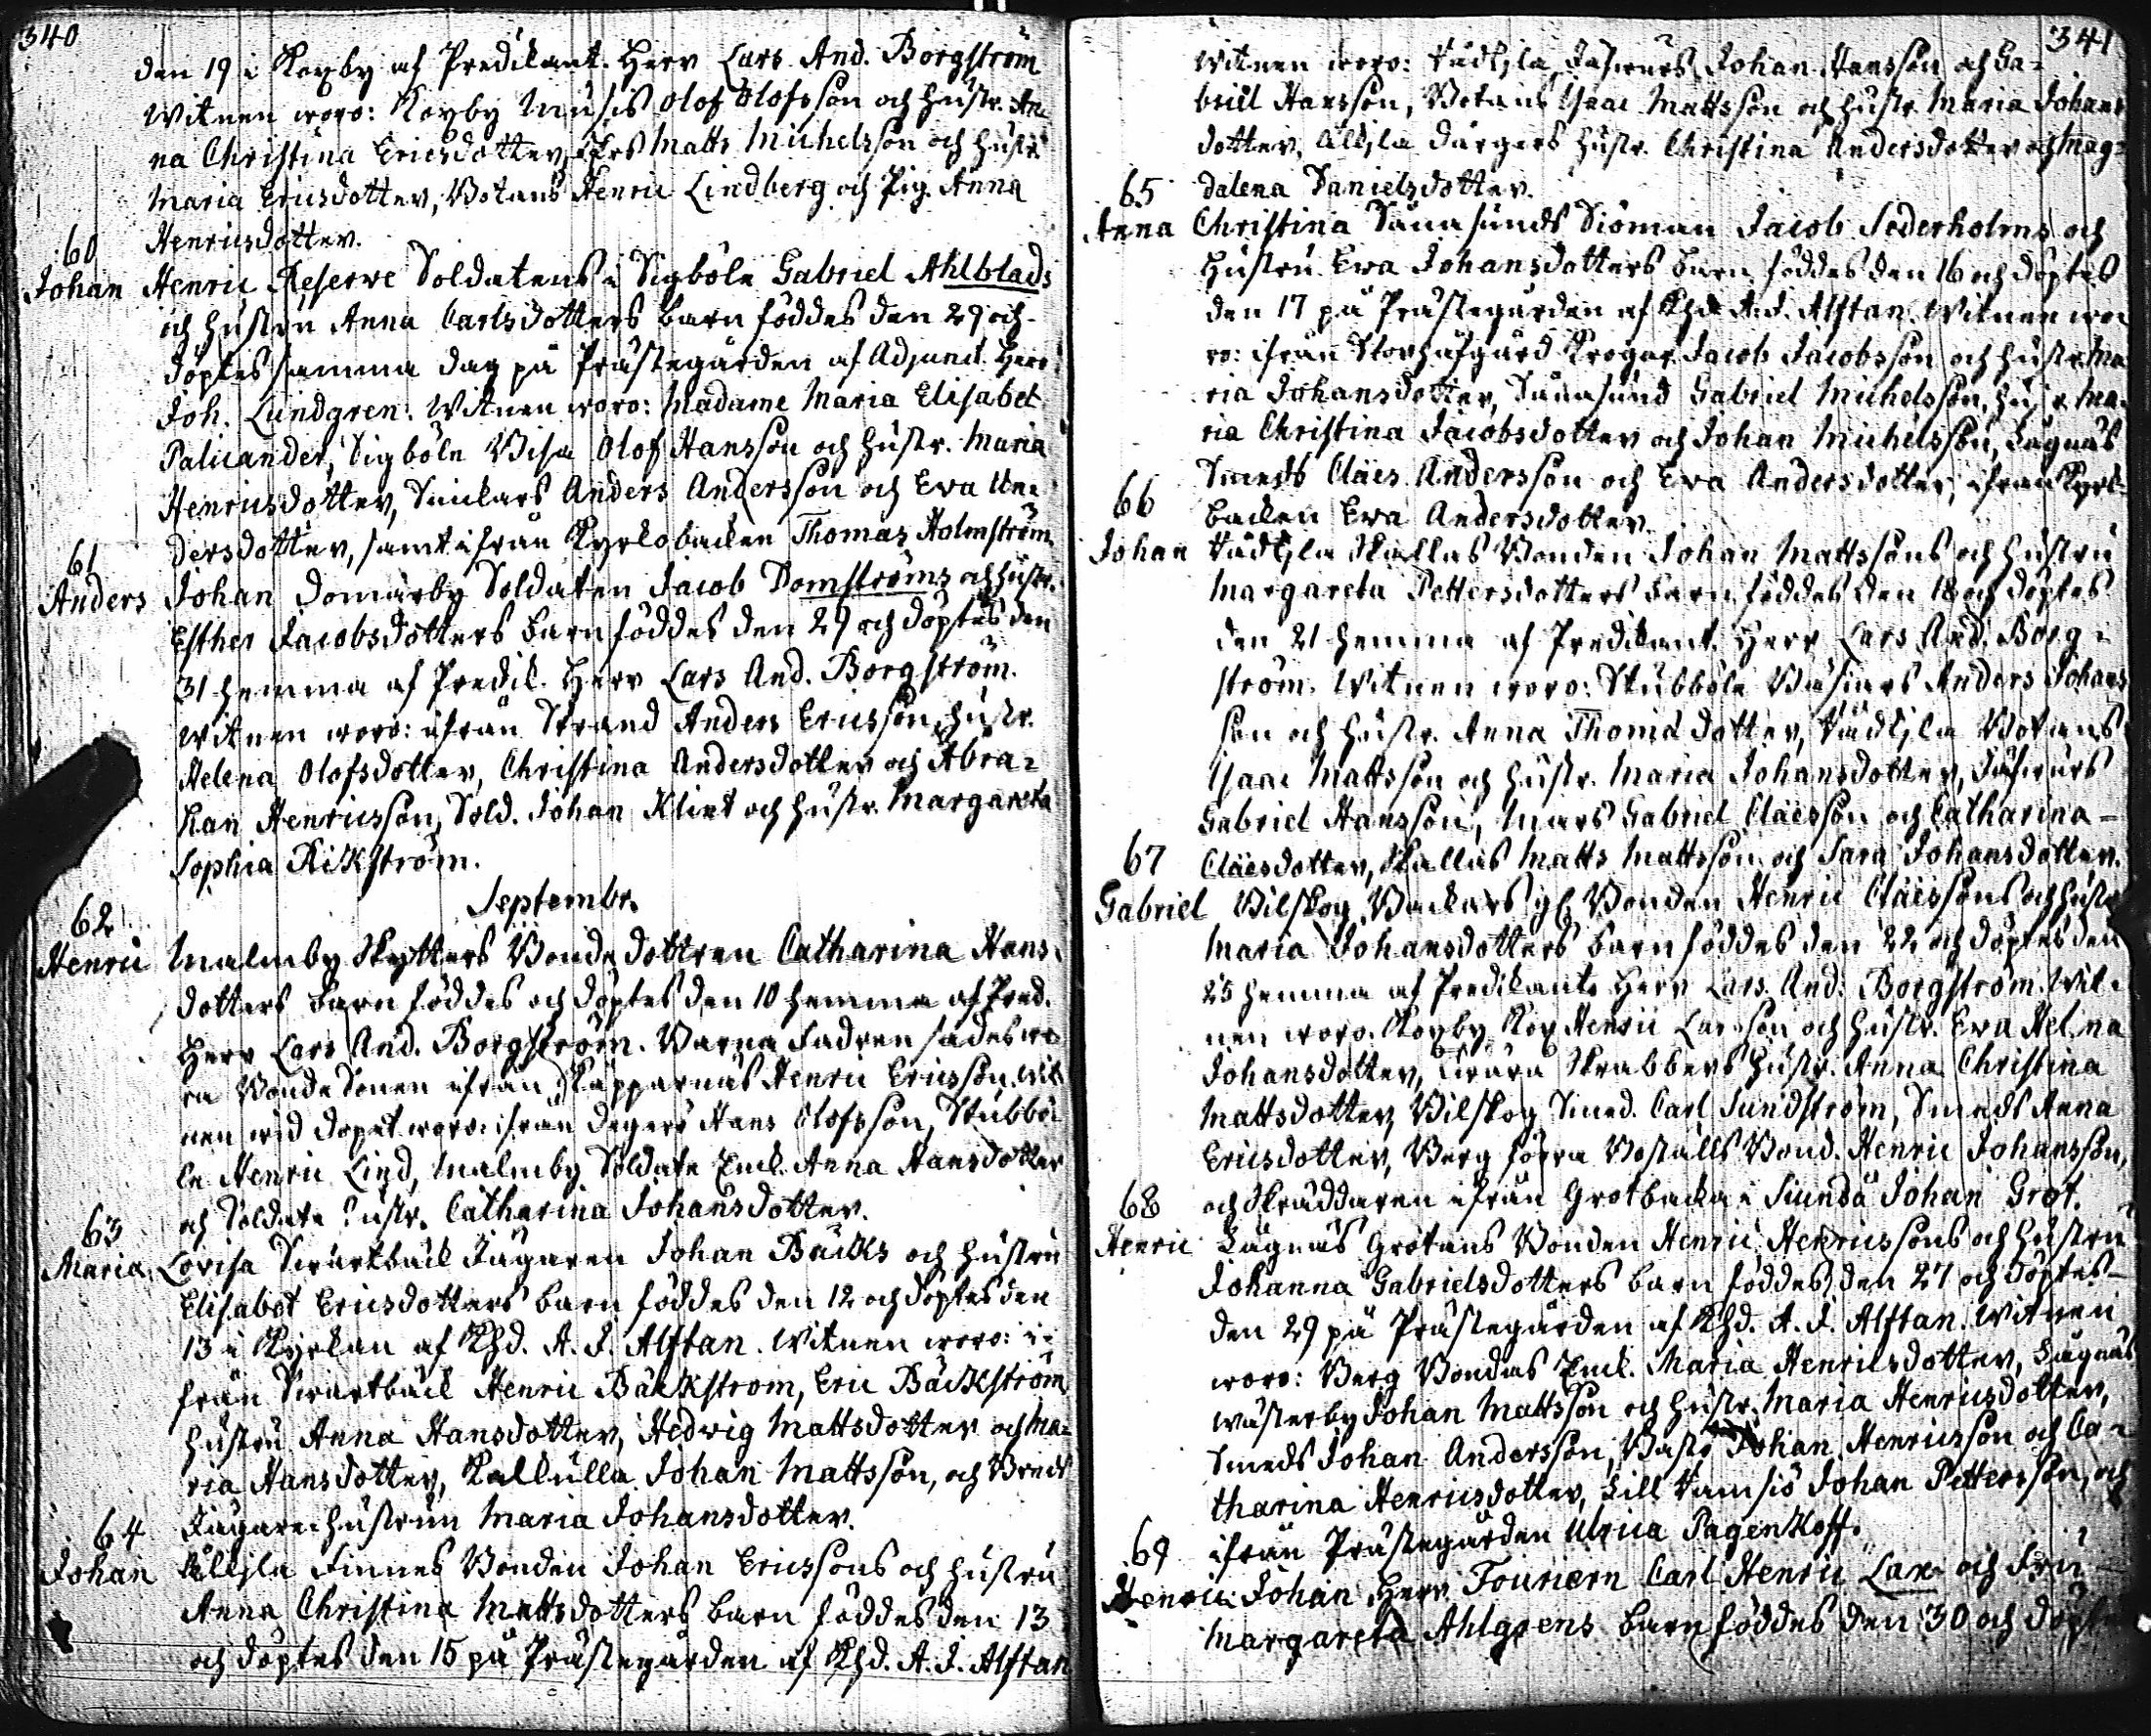 340
den 19 i Koxby af Predikant. Herr Lars And. Borgström
Witnen woro: Koxby Muhis Olof Olofsson och hustr. An
na Christina Ericsdotter, Matts Michelsson och hustr.
Maria Ericsdotter, Botans Henric Lindberg och Pig. Anna
Henricsdotter.
60
Johan Henric Reserve Soldatens i Sigböle Gabriel Ahlblads
och hustru Anna Carlsdotters barn föddes den 29 och
döptes samma dag på Prästegården af Adjunct. Herr
Joh. Lundgren. Witnen woro: Madame Maria Elisabet
Palicander, Sigböle Visa Olof Hansson och hustr. Maria
Henricsdotter, Snickars Anders Andersson och Eva An=
dersdotter, samt ifrån Kyrkobacken Thomas Holmström
61
Anders Johan Domarby Soldaten Jacob Domströms och hustr.
Esther Jacobsdotters barn föddes den 29 och döptes den
31 hemma af Predik. Herr Lars And. Borgström.
Witnen woro: ifrån Strand Anders Ericsson, hustr.
Helena Olofsdotter, Christina Andersdotter och Abra=
ham Henricsson, Sold. Johan Klint och hustr. Margareta
Sophia Rikström.
Septembr.
62
Henric Malmby Skytters Bonde dottren Catharina Hans
dotters barn föddes och döptes den 10 hemma af Pred.
Herr Lars And. Borgström. Barna Fadren sades wa
ra Bonde Sonen ifrån Kapparnäs Henric Ericsson. Wit
nen wid dopet woro: ifrån Degerö Hans Olofsson, Stubbö
le Henric Lind, Malmby Soldate Enck. Anna Hansdotter
och Soldate hustr. Catharina Johansdotter.
63
Maria Lovisa Swartbäck Jägaren Johan Bäcks och hustru
Elisabet Ericsdotters barn föddes den 12 och döptes den
13 i Kyrkan af Khd. A. J. Alftan. Witnen woro: i=
från Swartbäck Henric Bäckström, Eric Bäckström
hustru Anna Hansdotter, Hedwig Mattsdotter och Ma=
ria Hansdotter, Kalkulla Johan Mattsson, och
Jägare hustrun Maria Johansdotter.
64
Johan Finnes Bonden Johan Ericssons och hustru
Anna Christina Mattsdotters barn föddes den 13
och döptes den 15 på Prästegården af Khd. A. J. Alftan
341
Witnen woro: Johan Hansson och Ga=
briel Hansson, Botans Isaac Mattsson och hustr. Maria Johans
dotter, hustr. Christina Andersdotter och Mag=
dalena Danielsdotter.
65
Anna Christina Sånasunds Siöman Jacob Sederholms och
Hustru Ewa Johansdotters barn föddes den 16 och döptes
den 17 på Prästegården af Khd. A. J. Alftan. Witnen wo
ro: ifrån Krogar Jacob Jacobsson och hustr. Ma
ria Johansdotter, Sånasund Gabriel Michelsson, hustr. Ma
ria Christina Jacobsdotter och Johan Michelsson, Lågnäs
Smeds Claes Andersson och Eva Andersdotter, ifrån Kyrk=
backen Ewa Andersdotter.
66
Johan Skallas Bonden Johan Mattssons och hustru
Margareta Pettersdotters barn föddes den 18 och döptes
den 21 hemma af Predikant. Herr Lars And. Borg=
ström. Witnen woro: Stubböle Anders Johans
son och hustr. Anna Thomædotter, Botans
Isaac Mattsson och hustr. Maria Johansdotter,
Gabriel Hansson, Mars Gabriel Claesson och Catharina
Claesdotter, Skallas Matts Mattsson och Sara Johansdotter.
67
Gabriel Bilskog Backars Bonden Henric Claessons och hustr
Maria Johansdotters barn föddes den 22 och döptes den
25 hemma af Predikant. Herr Lars And. Borgström. Wit=
nen woro: Koxby Kox Henric Larsson och hustr. Ewa Helena
Johansdotter, Skrabbers hustr. Anna Christina
Mattsdotter, Bilskog Smed. Carl Sundström, Smeds Anna
Ericsdotter, Berg Boställs Bond. Henric Johansson,
och Skräddaren ifrån Grotbacka i Siundå Johan Grot.
68
Henric Lågnäs Grotans Bonden Henric Henricssons och hustru
Johanna Gabrielsdotters barn föddes den 27 och döptes
den 29 på Prästegården af Khd. A. J. Alftan. Witnen
woro: Berg Bondas Enck. Maria Henricsdotter, Lågnäs
Wästerby Johan Mattsson och hustr. Maria Henricsdotter,
Smeds Johan Andersson, Johan Henricsson och Ca=
tharina Henricsdotter, Lill Johan Pettersson, och
ifrån Prästegården Ulrica Pagenkoff.
69
Henric Johan Herr Fouriern Carl Henric Lax och Fru
Margareta Ahlgrens barn föddes den 30 och döpte